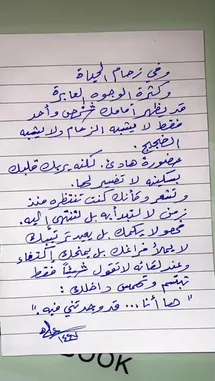 وفي زحام الحياة
وكثرة الوجوه العابرة
قد يظهر أمامك شخص واحد
فقط لا يشبه الزحام ولا يشبه
الضجيج.
حضوره هادئ. لكنه يربك قلبك
بسكينة لا تفسير لها.
وتشعر وكأنك كنت تنتظره منذ
زمن لا لتبدأ به بل لتنتهي إليه.
فهو لا يكملك بل يعيد ترتيبك
لا يملأ فراغك بل يمنحك إكتفاء
وعند لقائه لا تقول شيئاً فقط
تبتسم وتهمس داخلك:
"ها أنا... قد وجدتني فيه."
OOK